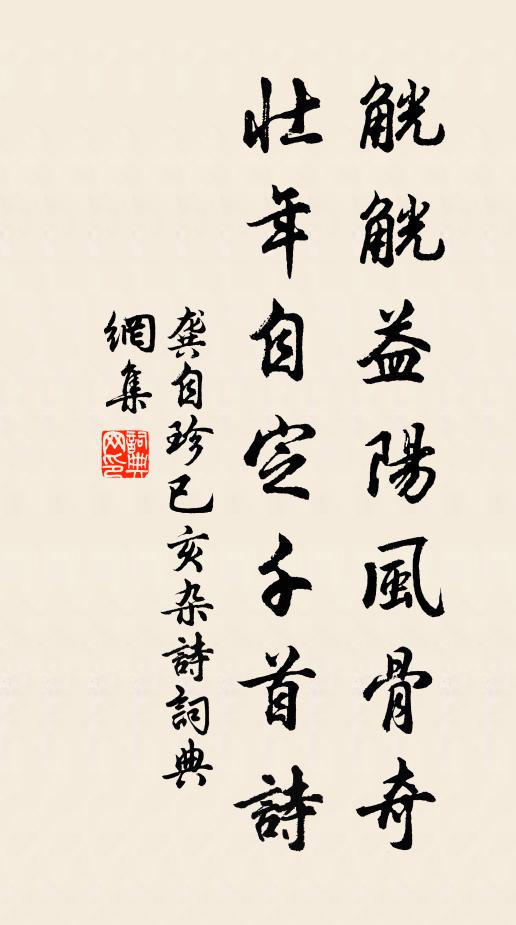 觥觥益陽風骨奇
壯年自定千首詩
龔自珍己亥杂詩詞典
網集
詞典
网印